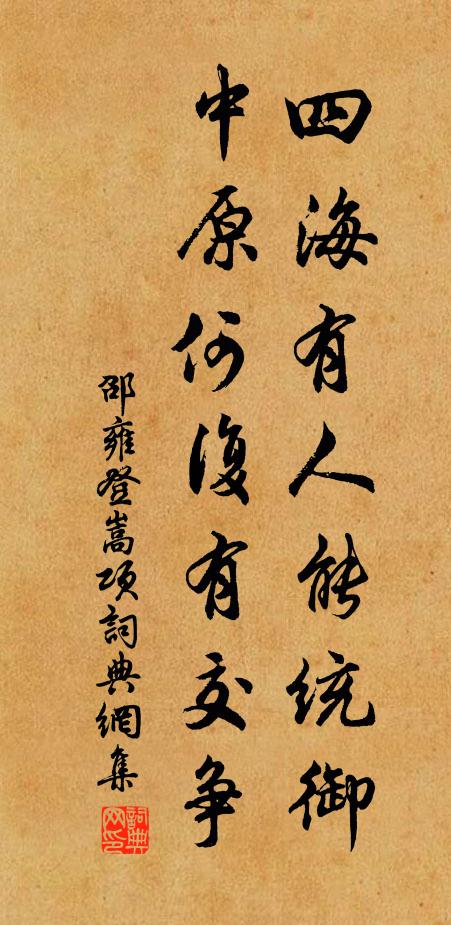 四海有人能統御
中原何復有交爭
邵雍登嵩項詞典網集
詞典網印